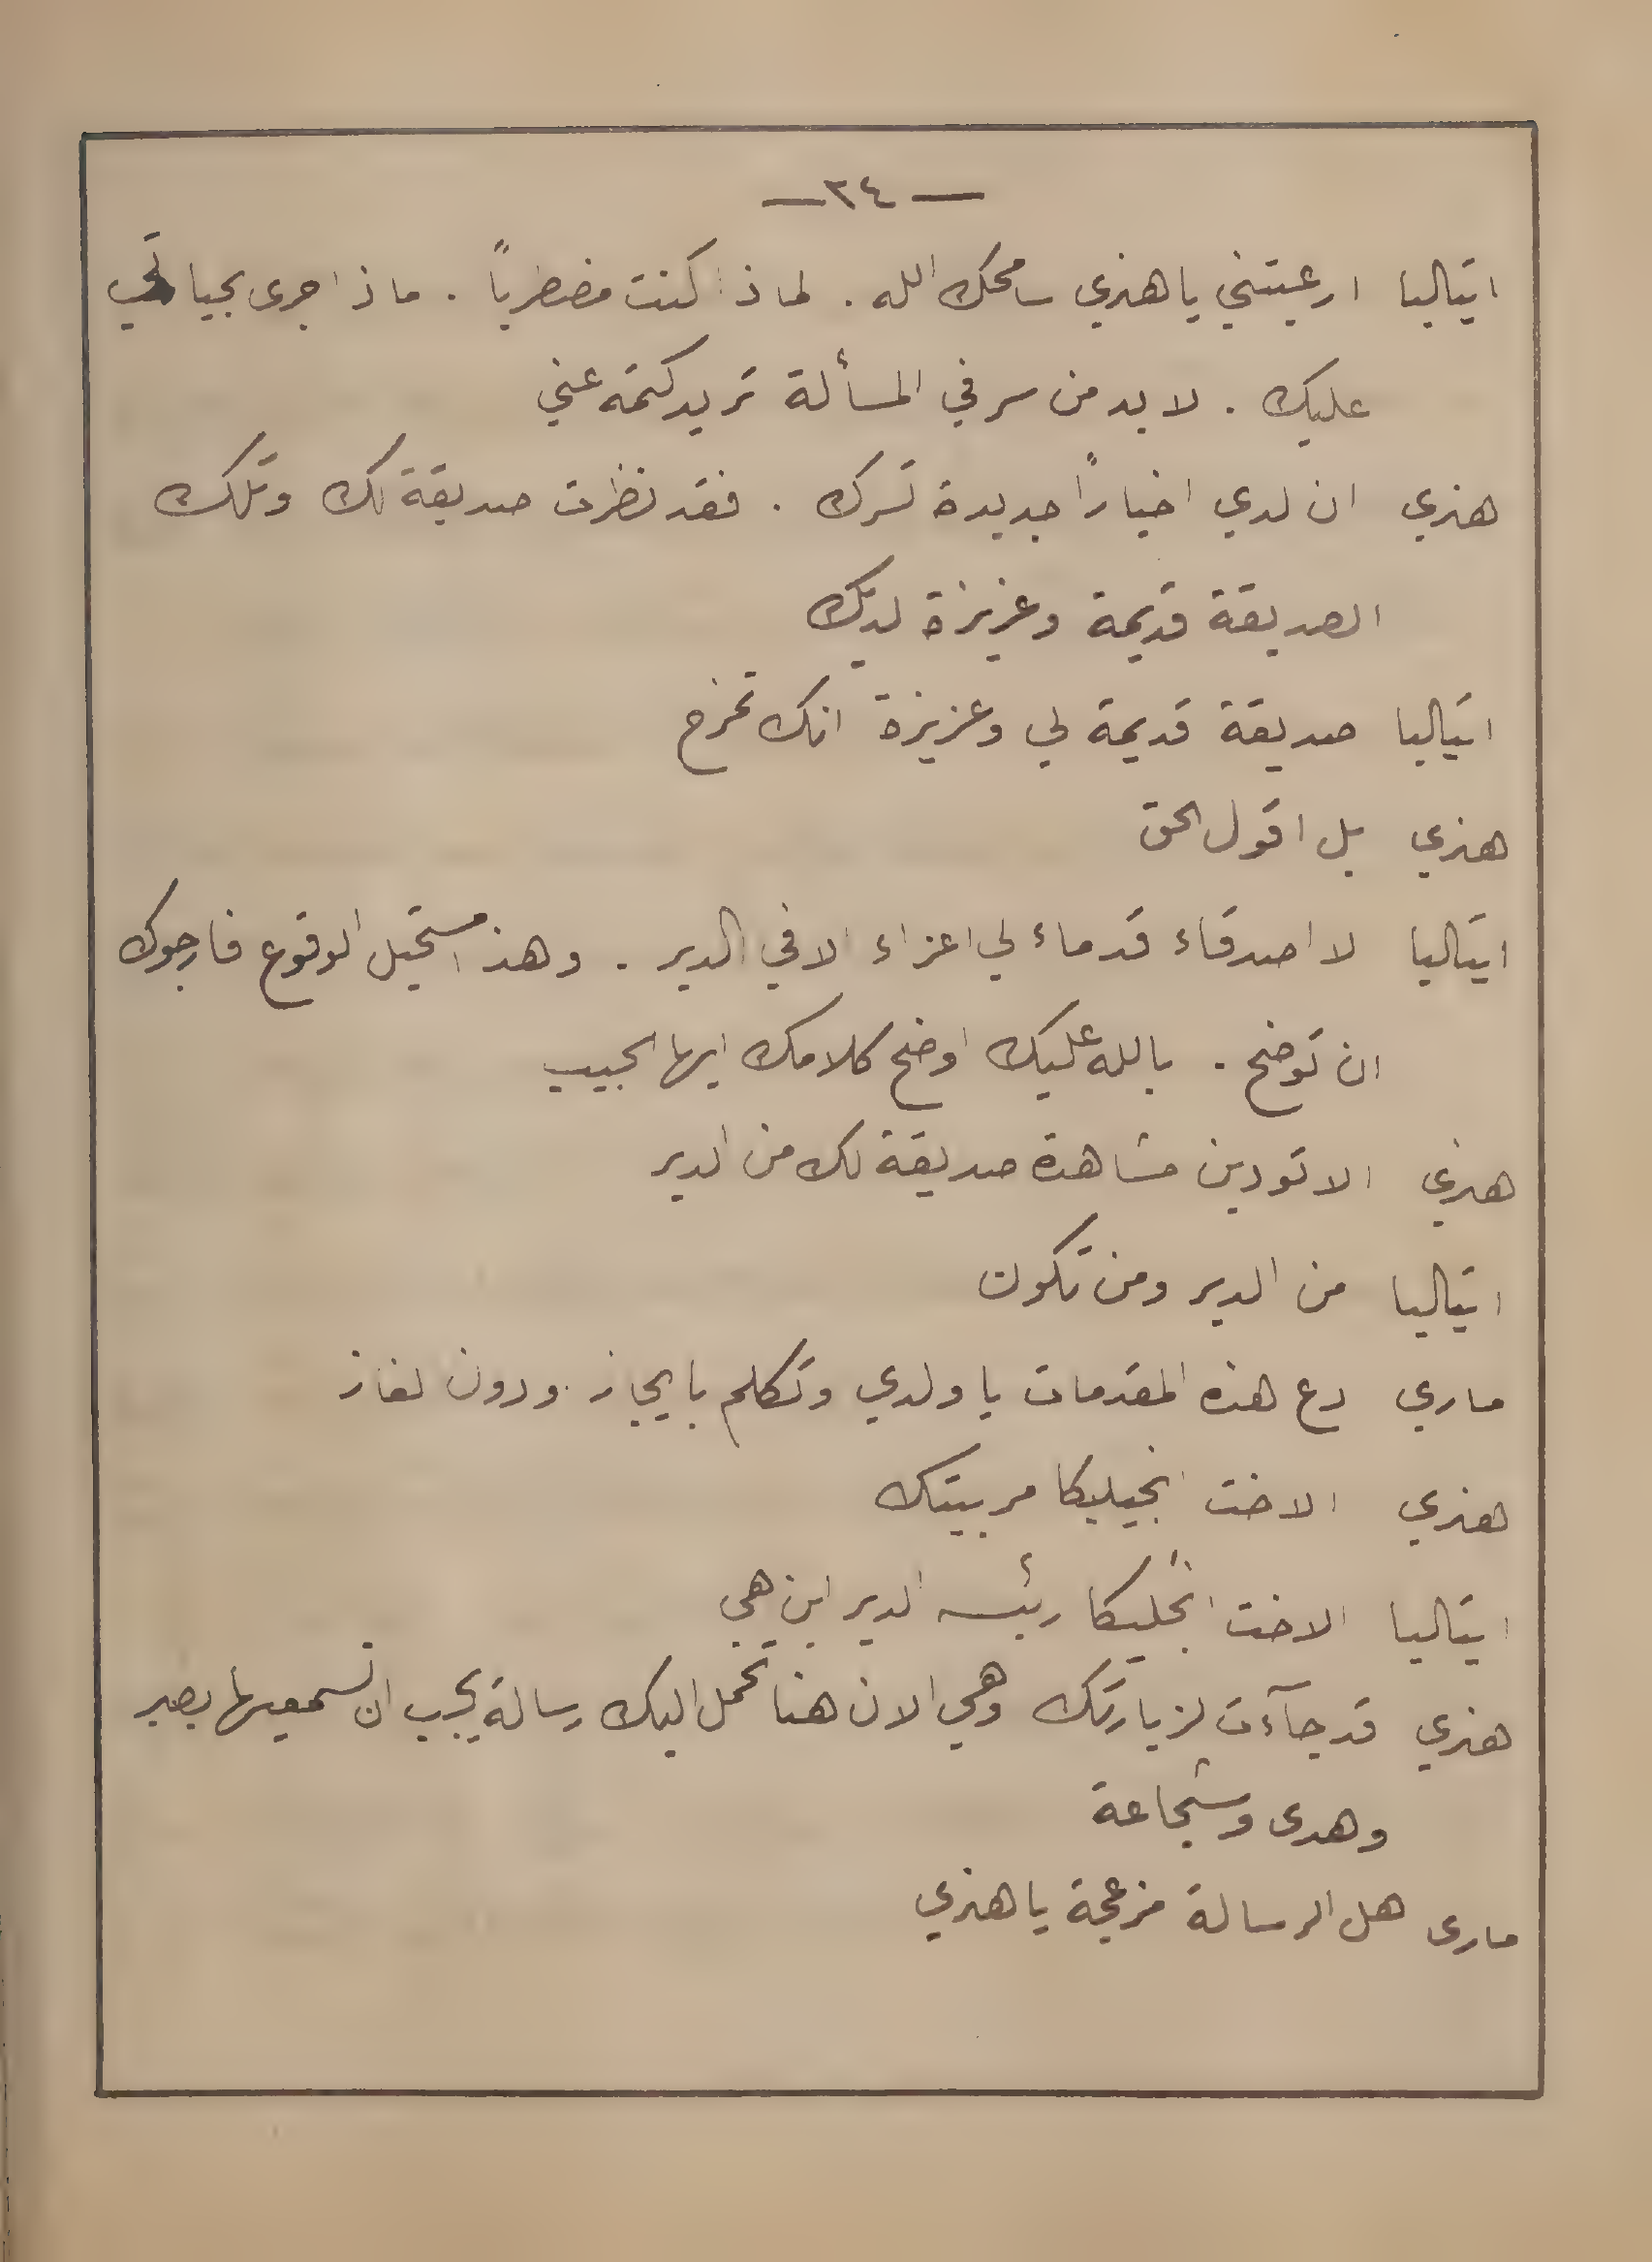 — ٢٤ —
ايتاليا ارعبتني يا هنري سامحك الله . لماذا كنت مضطرباً . ماذا جرى بحياتي
عليك . لا بد من سر في المسألة تريد كتمه عني
هنري ان لدي اخباراً جديدة تسرك . فقد نظرت صديقة لك وتلك
الصديقة قديمة وعزيزة لديك
ايتاليا صديقة قديمة لي وعزيزة انك تمزح
هنري بل اقول الحق
ايتاليا لا اصدقاء قدماء لي اعزاء الا في الدير . وهذا مستحيل الوقوع فارجوك
ان توضح . بالله عليك اوضح كلامك ايها الحبيب
هنري الا تودين مشاهدة صديقة لك من الدير
ايتاليا من الدير ومن تكون
ماري دع هذه المقدمات يا ولدي وتكلم بايجاز ودون لغاز
هنري الاخت انجيليكا مربيتك
ايتاليا الاخت انجليكا رئيسه الدير اين هي
هنري قد جآءت لزيارتك وهي الان هنا تحمل اليك رسالة يجب ان تسمعيها بصبر
وهدى وشجاعة
مارى هل الرسالة مزعجة يا هنري